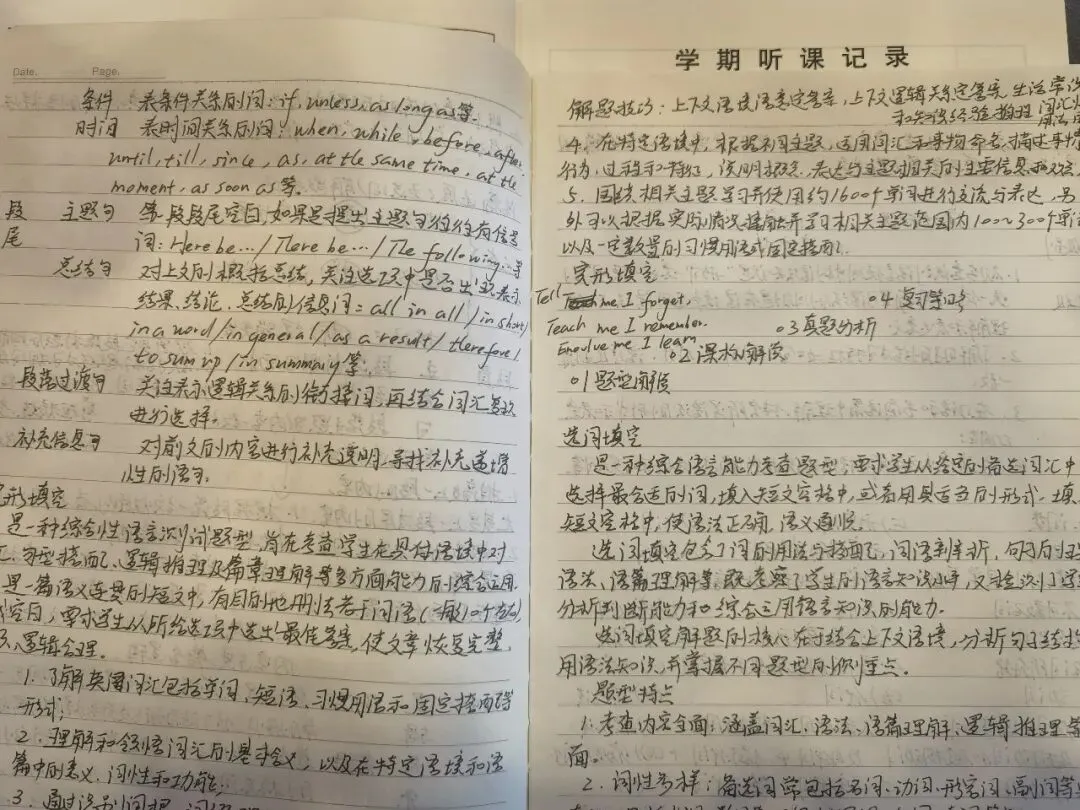 Date.
Page.
条件:表条件关系的词:if, unless, as long as等.
时间 表时间关系的词:when, while, before, after
until, till, since, as, at the same time, at the
moment, as soon as等.
段尾 主题句 第段段尾空白,如果是提出主题句往往有信号
词:Here be.../There be.../The following...等
总结句 对上文的概括总结,关注选项中是否出现表示
结果、结论、总结的信息词:all in all/in short/
in a word/in general/as a result/therefore/
to sum up/in summary等.
段落过渡句 关注表示逻辑关系的衔接词,再结合词汇复现
进行选择.
补充信息句 对前文的内容进行补充说明,寻找补充递增
性的语句.
形填空
是一种综合性语言测试题型,旨在考查学生在具体语境中对
汇、句型搭配、逻辑推理及篇章理解等多方面能力的综合运用.
是一篇语义连贯的短文中,有目的地删去若干词语(一般10个左右)
空白,要求学生从所给选项中选出最佳答案,使文章恢复完整,
、逻辑合理.
1.了解英国词汇包括单词、短语、习惯用语和固定搭配等
形式;
2.理解和领悟词汇的基本含义,以及在特定语境和语
篇中的意义、词性和功能;
3.通过识别词根、词缀
学期听课记录
解题技巧:上下文语境语意定答案,上下文逻辑关系定答案 生活常识
和知识经验推理
4.在特定语境中,根据不同主题,运用词汇给事物命名,描述事物
行为,过程和特征,说明概念,表达与主题相关的主要信息和观点
5.围绕相关主题学习并使用约1600个单词进行交流与表达,另
外可以根据实际情况接触并学习相关主题范围内100~300个单词
以及一定数量的习惯用语或固定搭配.
完形填空
Tell me I forget.
○4 复习笔记
Teach me I remember.
○3 真题分析
Envolve me I learn
○2 课标解读
○1 题型解读
选词填空
是一种综合语言能力考查题型,要求学生从给定的备选词汇中
选择最合适的词,填入短文空格中,或者用其适当的形式填
短文空格中,使语法正确,语义通顺.
选词填空包含了词的用法与搭配,词语辨析,句子的理
语法、语篇理解等,既考察了学生的语言知识水平,又检测了学
分析判断能力和综合运用语言知识的能力.
选词填空解题的核心在于结合上下文语境,分析句子结构
用语法知识,并掌握不同题型的侧重点.
题型特点
1.考查内容全面:涵盖词汇、语法、语篇理解、逻辑推理等
面.
2.词性多样:备选词常包括名词、动词、形容词、副词等